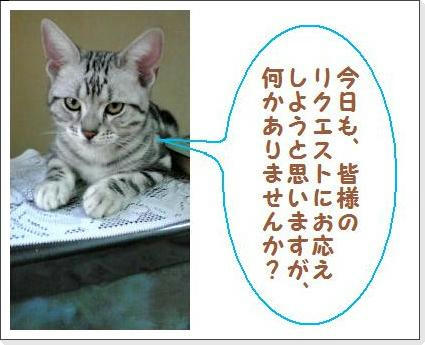 今日も、皆様の
リクエストにお応え
しようと思いますが、
何かありませんか？